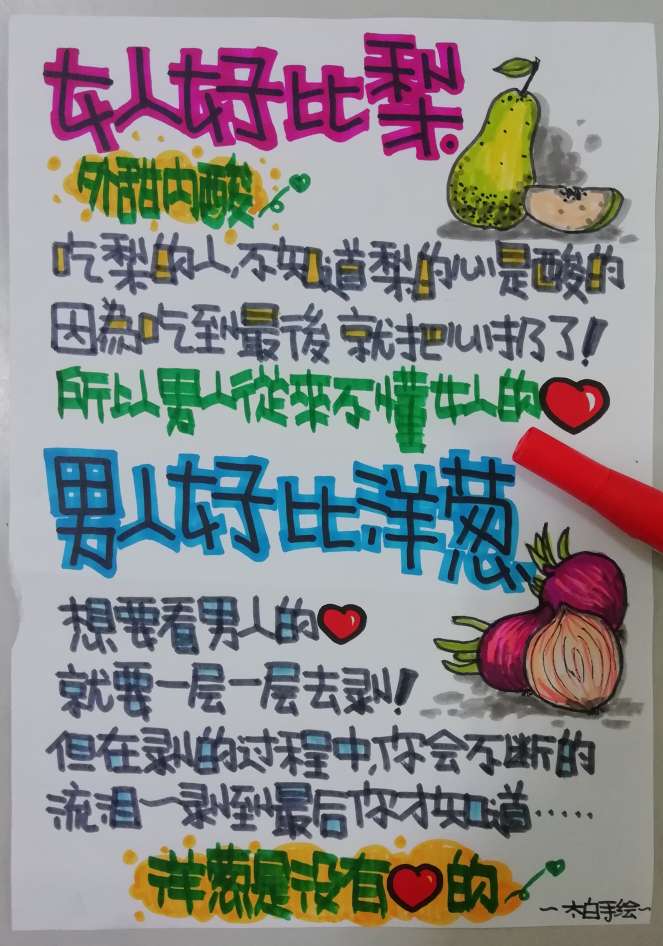 女人好比梨
外甜内酸
吃梨的人,不知道梨的心是酸的
因為吃到最後 就把心扔了!
所以男人從来不懂女人的❤
男人好比洋葱
想要看男人的❤
就要一层一层去剥!
但在剥的过程中,你会不断的
流泪~剥到最后你才知道·····
洋葱是没有❤的
~太白手绘~